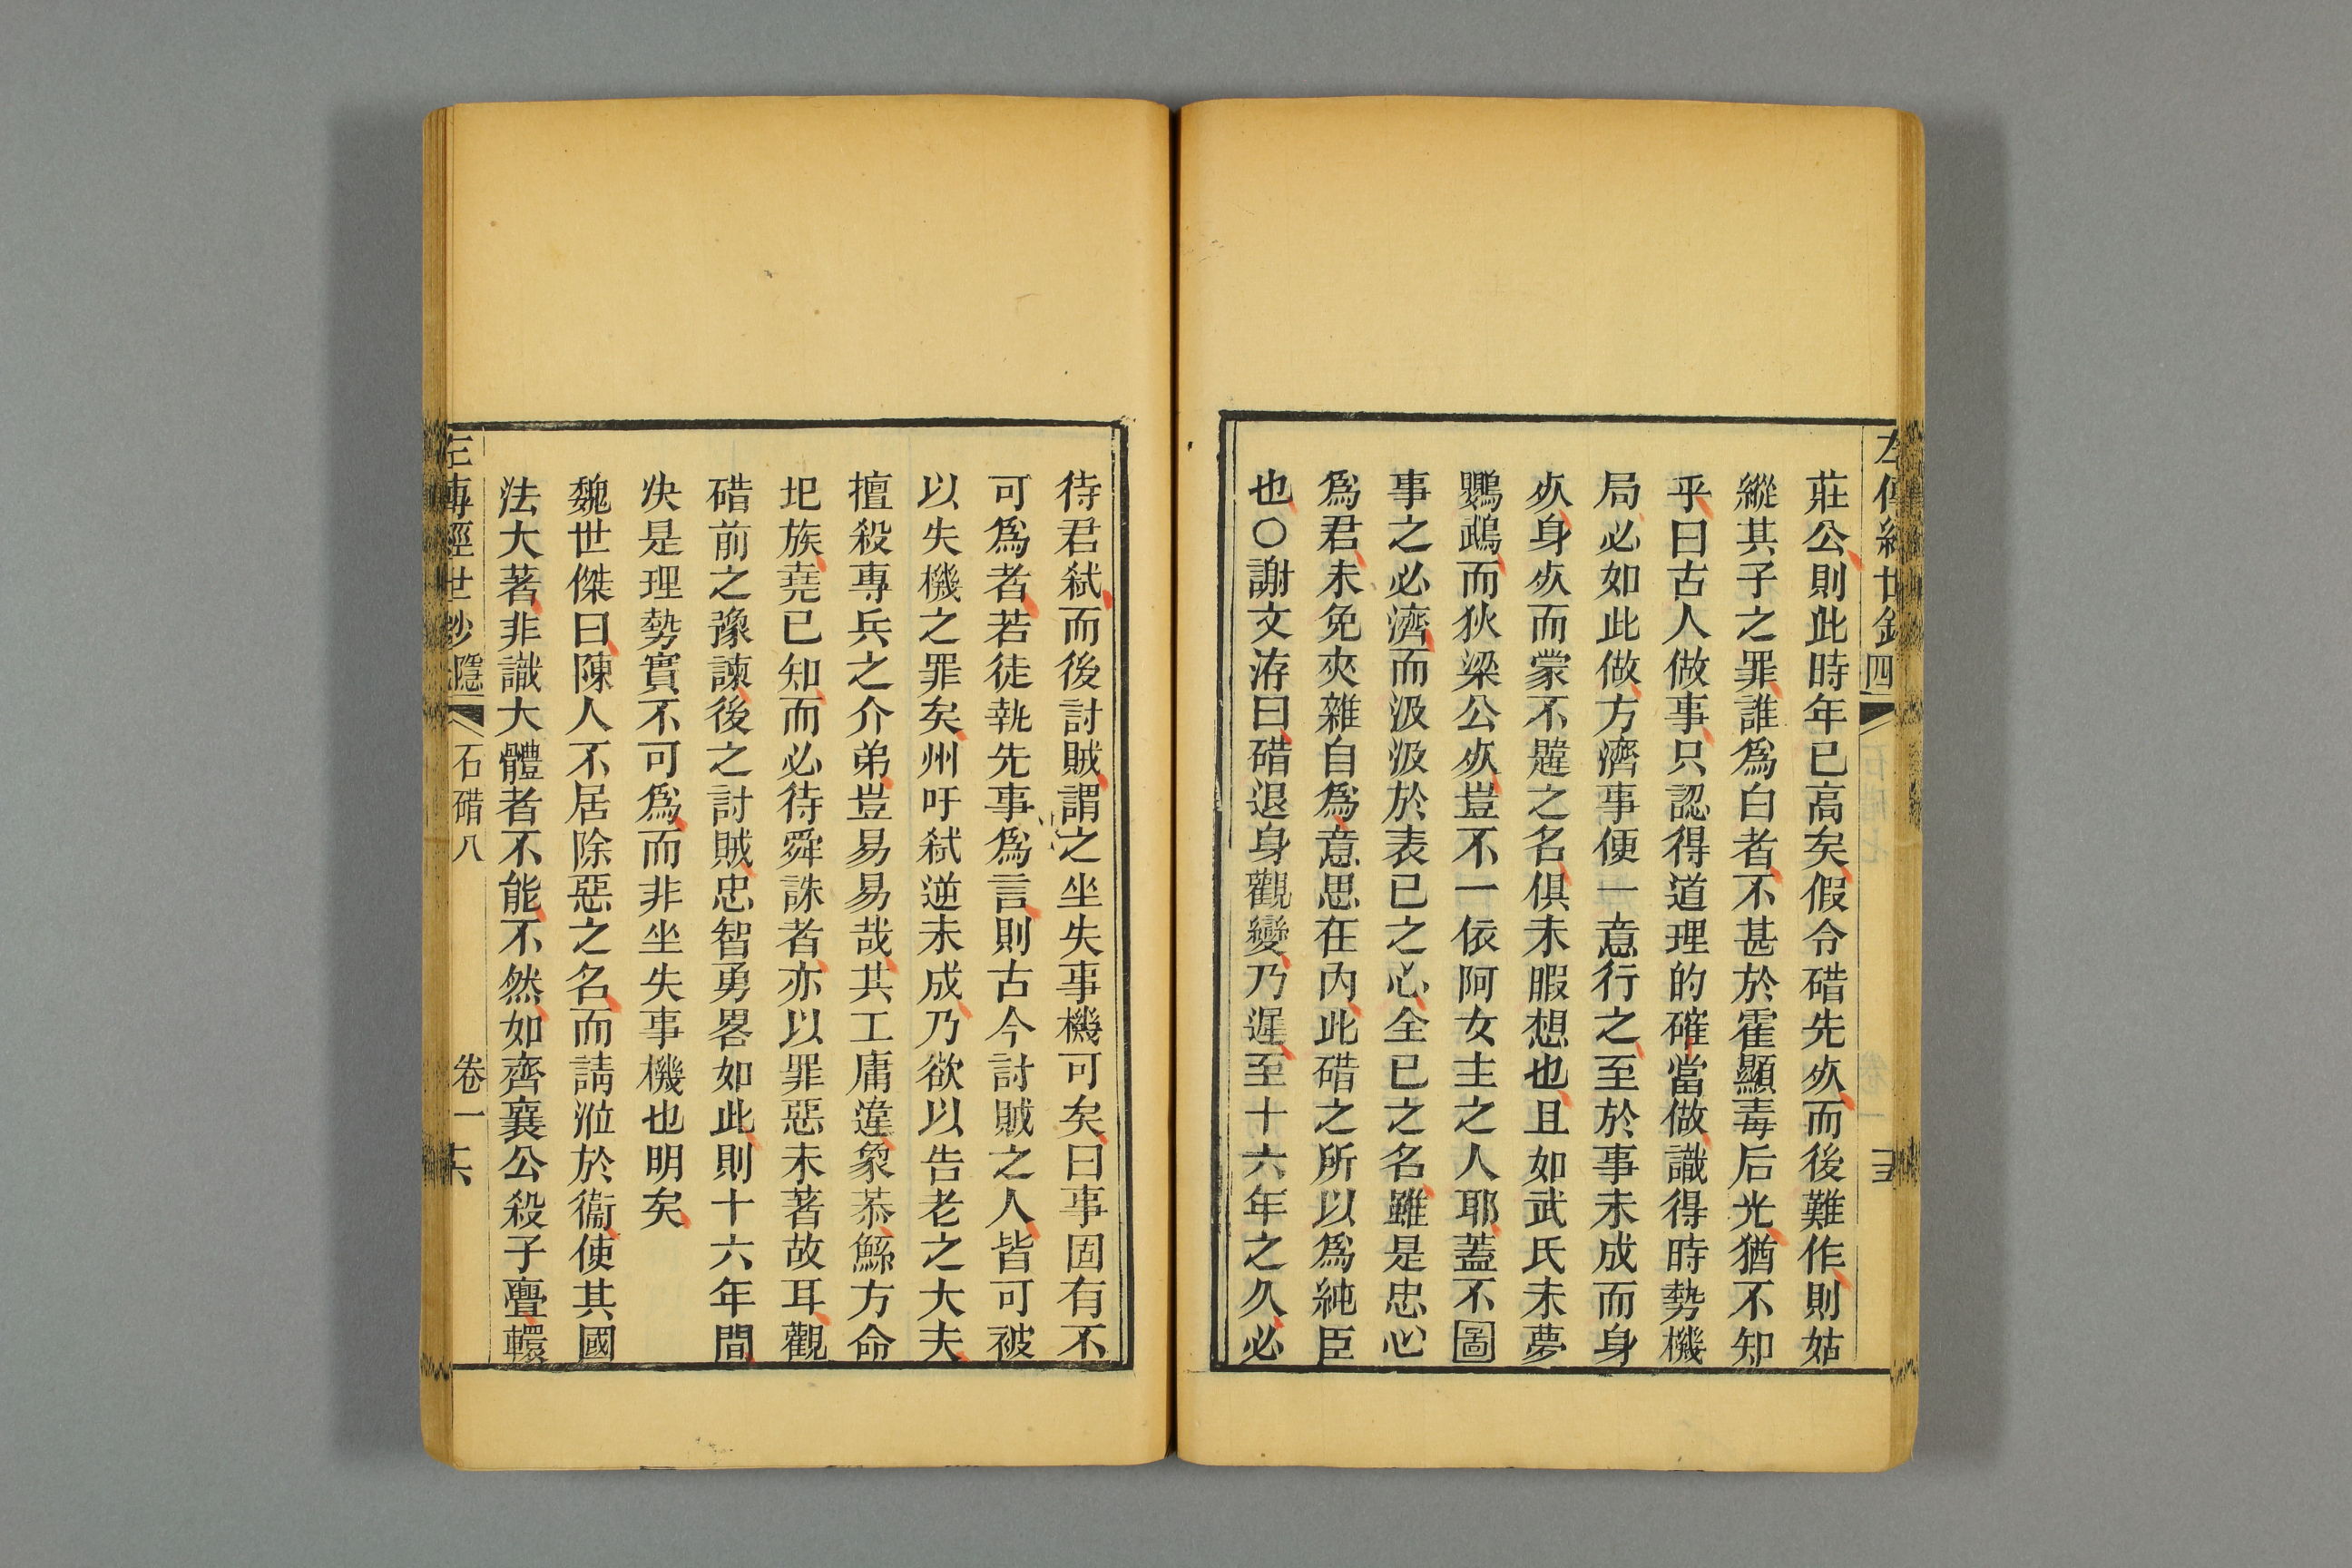 莊公則此時年已高矣假令碏先㱙而後難作則姑
縱其子之罪誰爲白者不甚於霍顯毒后光猶不知
乎曰古人做事只認得道理的確當做識得時勢機
局必如此做方濟事便一意行之至於事未成而身
㱙身㱙而蒙不韙之名俱未暇想也且如武氏未夢
鸚鵡而狄梁公㱙豈不一依阿女主之人耶蓋不圖
事之必濟而汲汲於表已之心全已之名雖是忠心
爲君未免夾雜自爲意思在內此碏之所以爲純臣
也○謝文洊曰碏退身觀變乃遲至十六年之久必
待君弑而後討賊謂之坐失事機可矣曰事固有不
可爲者若徒執先事爲言則古今討賊之人皆可被
以失機之罪矣州吁弑逆未成乃欲以告老之大夫
擅殺專兵之介弟豈易易哉共工庸違象恭鯀方命
圮族堯已知而必待舜誅者亦以罪惡未著故耳觀
碏前之豫諫後之討賊忠智勇畧如此則十六年間
决是理勢實不可爲而非坐失事機也明矣
魏世傑曰陳人不居除惡之名而請涖於衞使其國
法大著非識大體者不能不然如齊襄公殺子亹轘
左傳經世鈔 隱 石碏八 卷一